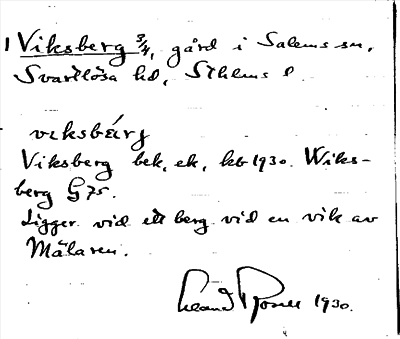 1 Viksberg 3/4, gård i Salems sn,
Svartlösa hd, Sthlms l
viksbärj
Viksberg bek, ek, kb 1930. Wiks-
berg G 75.
Ligger vid ett berg vid en vik av
Mälaren.
1930.